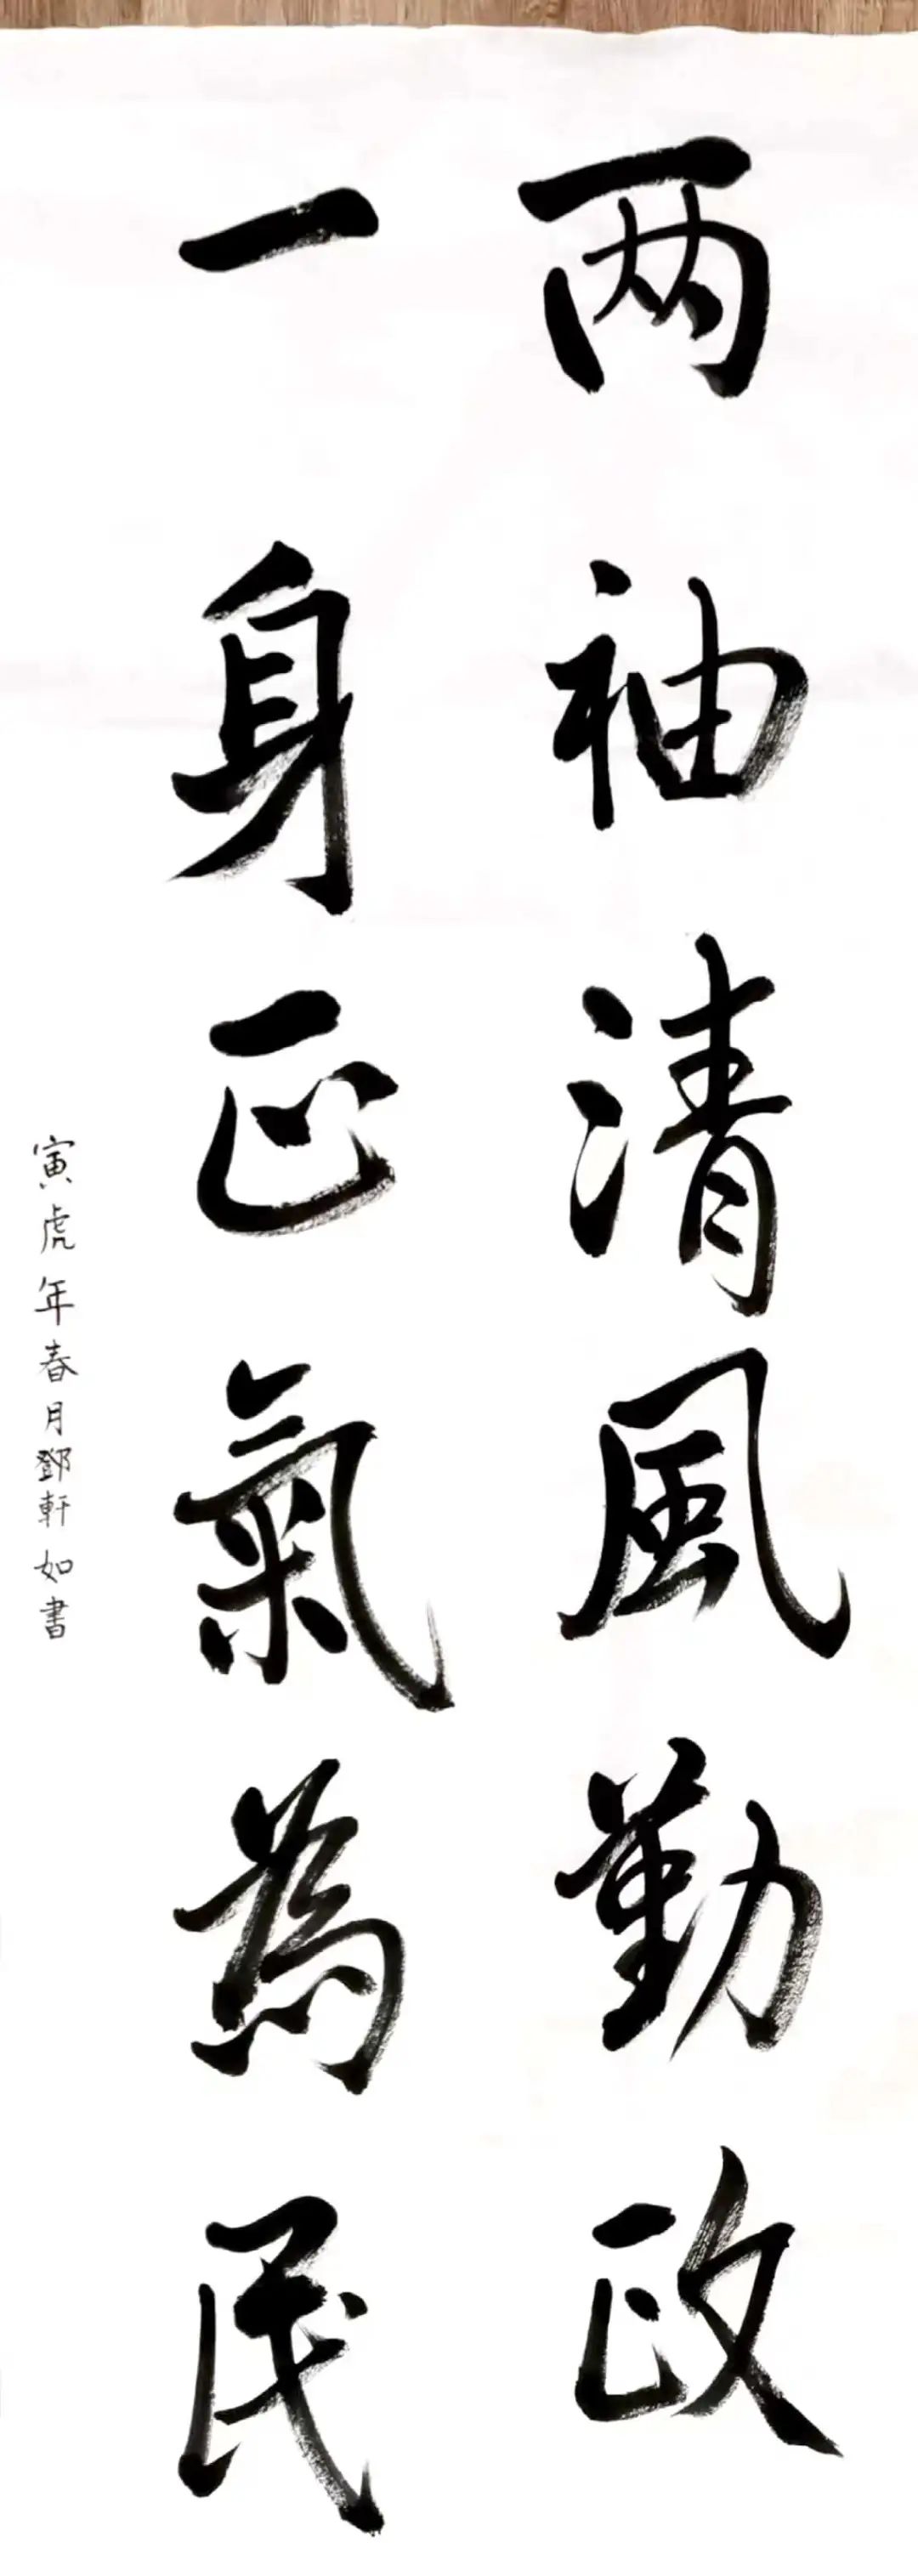 两袖清風勤政
一身正氣為民
寅虎年春月鄧軒如書